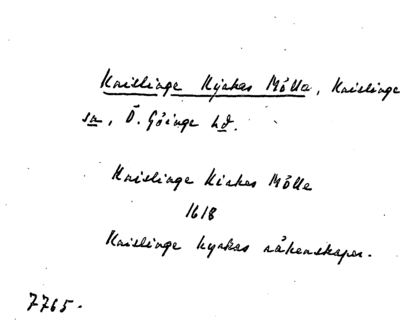 Knislinge Kyrkas Mölla, Knislinge
sn, Ö. Göinge hd.
Knislinge Kirkes Mölle
1618
Knislinge kyrkas räkenskaper.
7765.